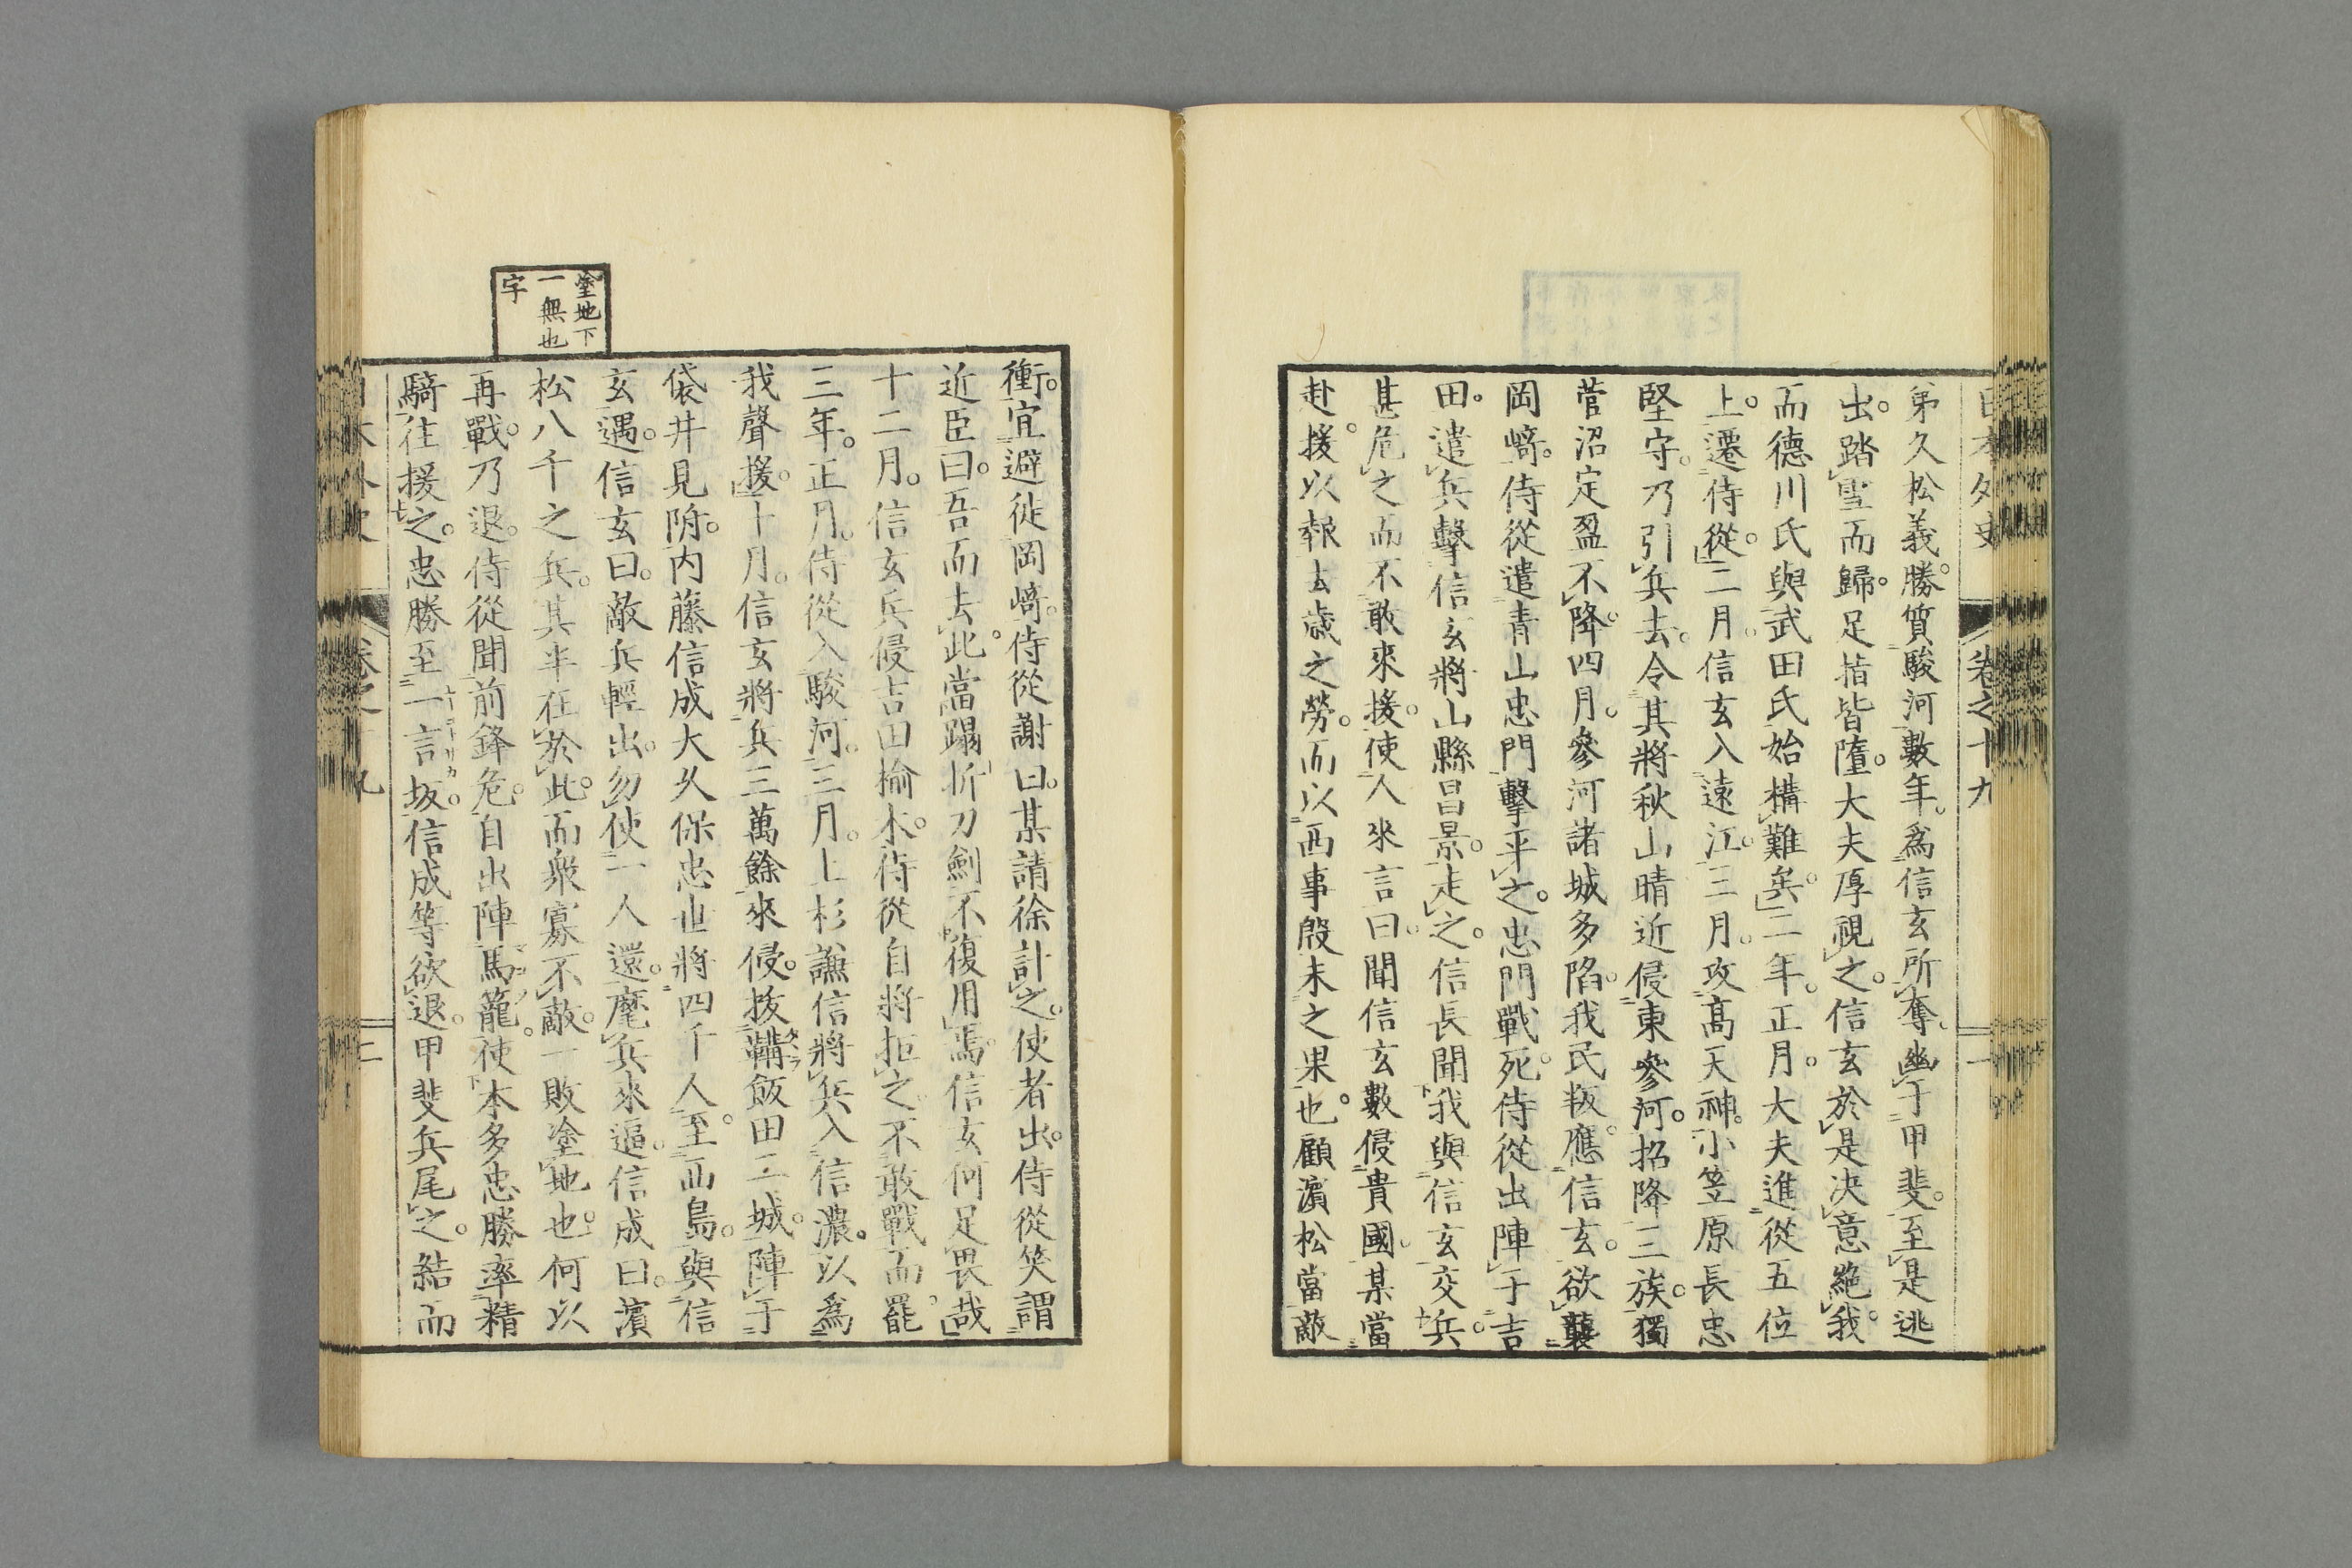 日本外史 卷之十九 一
弟久松義勝。質駿河數年。爲信玄所奪。幽于甲斐。至是逃
出。踏雪而歸。足指皆墮。大夫厚視之。信玄於是決意絶我。
而德川氏與武田氏始構難矣。二年。正月。大夫進從五位
上。遷侍從。二月。信玄入遠江。三月。攻高天神。小笠原長忠
堅守。乃引兵去。令其將秋山晴近侵東參河。招降三族。獨
菅沼定盈不降。四月。參河諸城多陷。我民叛應信玄。欲襲
岡崎。侍從遣青山忠門擊平之。忠門戰死。侍從出陣于吉
田。遣兵擊信玄將山縣昌景。走之。信長聞我與信玄交兵。
甚危之而不敢來援。使人來言曰。聞信玄數侵貴國。某當
赴援。以報去歳之勞。而以西事殷未之果也。顧濱松當敵
衝。宜避徙岡崎。侍從謝曰。某請徐計之。使者出。侍從笑謂
近臣曰。吾而去此。當蹋折刀劍不復用焉。信玄何足畏哉
十二月。信玄兵侵吉田楡木。侍從自將拒之。不敢戰而罷。
三年。正月。侍從入駿河。三月。上杉謙信將兵入信濃。以爲
我聲援。十月。信玄將兵三萬餘來侵。拔鞲飯田二城。陣于
袋井見附。内藤信成大久保忠世將四千人。至西島。與信
玄遇。信玄曰。敵兵輕出。勿使一人還。麾兵來逼。信成曰。濱
松八千之兵。其半在於此。而衆寡不敵。一敗塗地也。何以
再戰。乃退。侍從聞前鋒危。自出陣馬籠。使本多忠勝率精
騎往援之。忠勝至一言坂。信成等欲退。甲斐兵尾之。結而
塗地下
一無也
字
日本外史 卷之十九 二